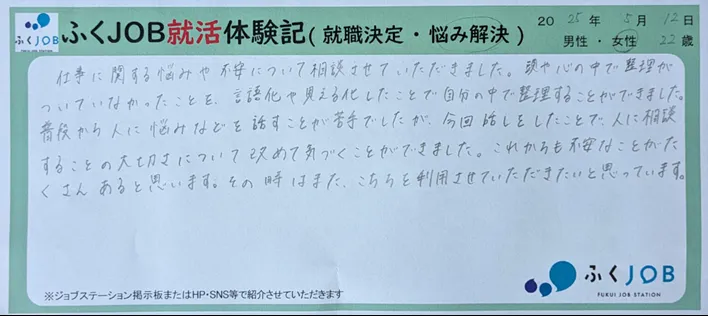 ふくJOB
ふくJOB就活体験記(就職決定・悩み解決)
2025年5月12日
男性・女性 22歳
仕事に関する悩みや不安について相談させていただきました。頭や心の中で整理が
ついていなかったことを、言語化や見える化したことで自分の中で整理することができました。
普段から人に悩みなどを話すことが苦手でしたが、今回話しをしたことで、人に相談
することの大切さについて改めて気づくことができました。これからも不安なことがた
くさんあると思います。その時はまた、こちらを利用させていただきたいと思っています。
ふくJOB
FUKUI JOB STATION
※ジョブステーション掲示板またはHP・SNS等で紹介させていただきます